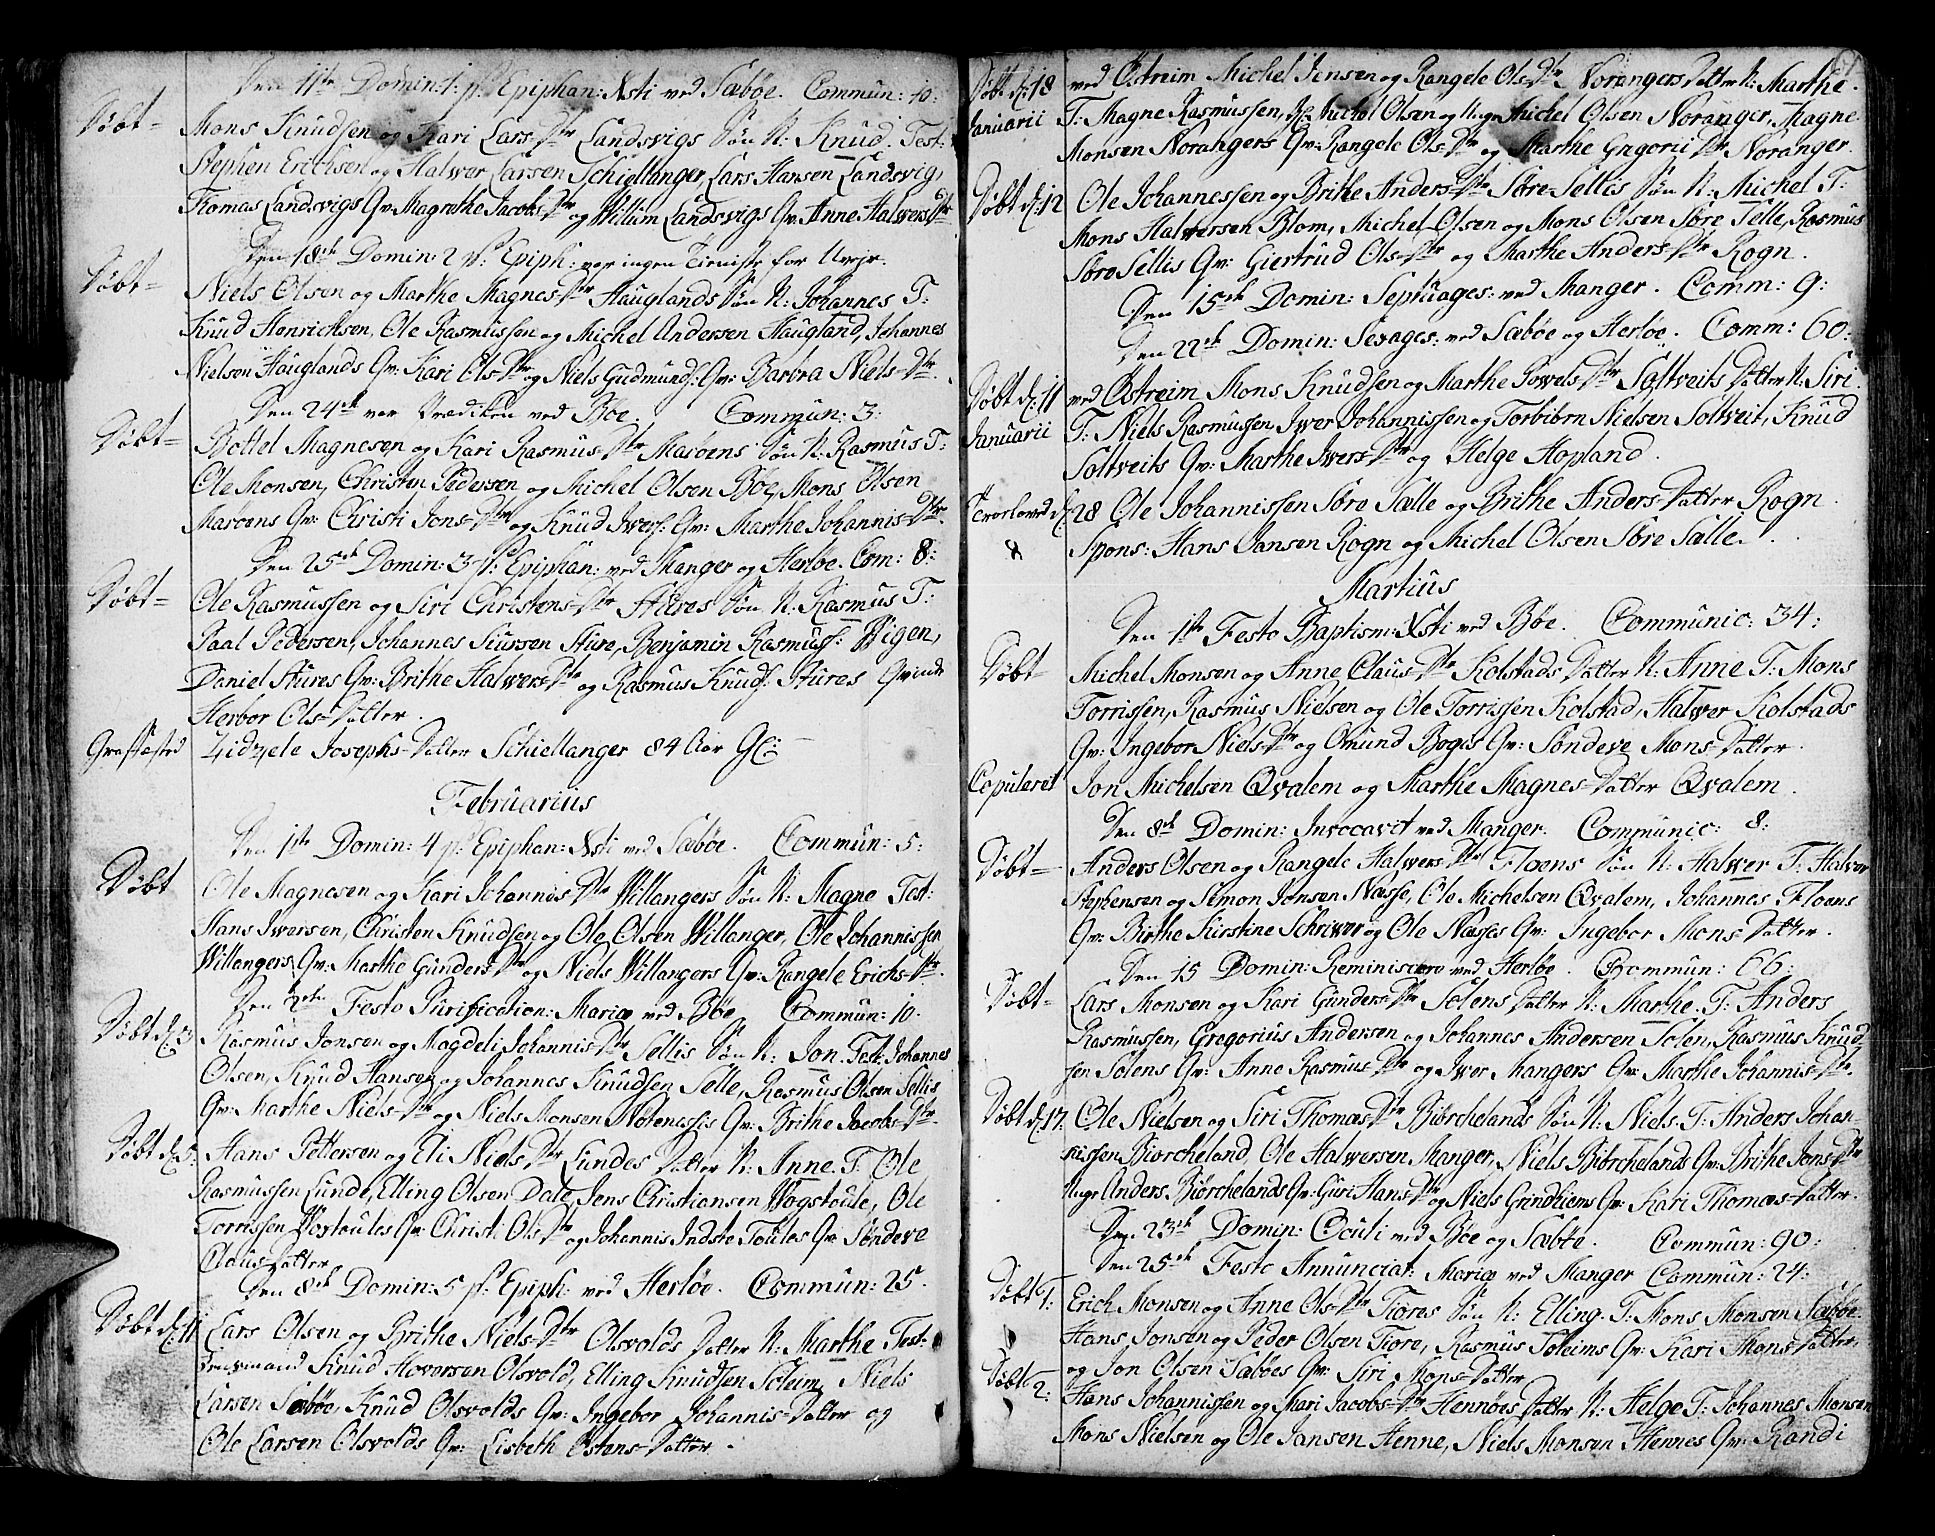 Den 11te Domin: 1 p: Epiphan: Xsti ved Sæbøe. Commun: 10:
Døbt= Mons Knudsen og Kari Lars Dtr Landsvigs Søn N: Knud. Test:
Stephen Erichsen og Halwer Larsen Schiellanger, Lars Hansen Landsvig,
Thomas Landsvigs Qv: Magrethe Jacobs Dtr og Willum Landsvigs Qv: Anne Halwers Dtr
Den 18de Domin: 2 p: Epiph: var ingen Tieniste for Uvejr.
Døbt= Niels Olsen og Marthe Magnes Dtr Hauglands Søn N: Johannes T:
Knud Henrichsen, Ole Rasmussen og Michel Andersen Haugland, Johannes
Nielsen Hauglands Qv: Kari Ols Dtr og Niels Gudmunds: Qv: Barbra Niels Dtr.
Den 24de var Prædiken ved Bøe. Commun: 3:
Døbt= Bottel Magnesen og Kari Rasmus Dtr Marøens Søn N: Rasmus T:
Ole Monsen, Christen Pedersen og Michel Olsen Bøe, Mons Olsen
Marøens Qv: Christi Jons Dtr og Knud Iwers: Qv: Marthe Johannis Dtr.
Den 25de Domin: 3 p: Epiphan: ved Manger og Herløe. Com: 8:
Døbt= Ole Rasmussen og Siri Christens Dtr Stures Søn N: Rasmus T:
Paal Pedersen, Johannes Siursen Sture, Benjamin Rasmuss: Wigen,
Daniel Stures Qv: Brithe Halwers Dtr og Rasmus Knuds: Stures Qvinde
Herbor Ols Datter.
Grafæsted Zidzele Josephs Datter Schiellanger 84 Aar Gl:
Februarius
Den 1te Domin: 4 p: Epiphan: Xsti ved Sæbøe. Commun: 5:
Døbt Ole Magnesen og Kari Johannis Dtr Willangers Søn N: Magne Test:
Hans Iwersen, Christen Knudsen og Ole Olsen Willanger, Ole Johannissen
Willangers Qv: Marthe Gunders Dtr og Niels Willangers Qv: Rangele Erichs Dtr.
Den 2den Festo Purification: Mariæ ved Bøe Commun: 10.
Døbt d: 3 Rasmus Jonsen og Magdeli Johannis Dtr Sellis Søn N: Jon. Test: Johannes
Olsen, Knud Hansen og Johannes Knudsen Selle, Rasmus Olsen Sellis
Qv: Marthe Niels Dtr og Niels Monsen Notenessis Qv: Brithe Jacobs Dtr.
Døbt d: Hans Pettersen og Eli Niels Dtr Lundes Datter N: Anne. T: Ole
Rasmussen Lunde, Elling Olsen Dale, Jens Christiansen Wogstoule, Ole
Torrissen Wostoules Qv: Christi Ols Dtr og Johannis Indste Toules Qv: Søndeve
Claus Datter
Den 8de Domin: 5 p: Epiph: ved Herløe. Commun: 25.
Døbt d: 11 Lars Olsen og Brithe Niels Dtr Olsvolds Datter N: Marthe Test:
Lensmand Knud Howersen Olsvold, Elling Knudsen Soleim, Niels
Larsen Sæbøe, Knud Olsvolds Qv: Ingebor Johannis Datter og
Ole Larsen Olsvolds Qv: Lisbeth Ostens Datter.
Døbt d: 18 Januarii ved Østreim Michel Jensen og Rangele Ols Dtr Norangers Datter N: Marthe.
T: Magne Rasmussen, Michel Olsen og Michel Olsen Noranger, Magne
Monsen Norangers Qv: Rangele Ols Dtr og Marthe Grigorii Dtr Noranger.
Døbt d: 12 Ole Johannessen og Brithe Anders Dtr Søre Sellis Søn N: Michel T:
Mons Halwersen Blom, Michel Olsen og Mons Olsen Søre Selle, Rasmus
Søre Sellis Qv: Giertrud Ols Dtr og Marthe Anders Dtr Rogn.
Den 15de Domin: Septuages: ved Manger. Comm: 9:
Den 22de Domin: Sexages: ved Sæbøe og Herløe. Comm: 60:
Døbt d: 11 Januarii ved Østreim Mons Knudsen og Marthe Powels Dtr Soltveits Datter N: Siri.
T: Niels Rasmussen, Iwer Johannissen og Torbiørn Nielsen Soltveit, Knud
Soltveits Qv: Marthe Iwers Dtr og Helge Hopland.
Trolovet d: 28 Ole Johannissen Søre Sælle og Brithe Anders Datter Rogn.
Spons: Hans Jansen Rogn og Michel Olsen Søre Sælle.
Martius
Den 1te Festo Baptism: Xsti ved Bøe. Communic: 34:
Døbt= Michel Monsen og Anne Claus Dtr Kolstads Datter N: Anne T: Mons
Torrissen, Rasmus Nielsen og Ole Torrissen Kolstad, Halwer Kolstads
Qv: Ingebor Niels Dtr og Omund Boges Qv: Søndeve Mons Datter.
Copuleret Jon Michelsen Qvalem og Marthe Magnes Datter Qvalem.
Den 8de Domin: Invocavit ved Manger. Communic: 8:
Døbt= Anders Olsen og Rangele Halwers Dtr Floens Søn N: Halwer T: Halwor
Stephensen og Simon Jonsen Næsse, Ole Michelsen Qvalem, Johannes Floens
Qv: Birthe Kirstine Schriwer og Ole Næsses Qv: Ingebor Mons Datter.
Den 15 Domin: Reminiscere ved Herløe. Commun: 66:
Døbt= Lars Monsen og Kari Gunders Dtr Solens Datter N: Marthe. T: Anders
Rasmussen, Gregorius Andersen og Johannes Andersen Solen, Rasmus Knud-
sen Solens Qv: Anne Rasmus Dtr og Iwer Mangers Qv: Marthe Johannis Dtr.
Døbt d: 17: Ole Nielsen og Siri Thomæ Dtr Biørchelands Søn N: Niels. T: Anders Johan-
nissen Biørcheland, Ole Halwersen Manger, Niels Biørchelands Qv: Brithe Jons Dtr
Unge Anders Biørchelands Qv: Guri Hans Dtr og Niels Grindhiems Qv: Kari Thomæs Datter.
Den 23de Domin: Oculi ved Bøe og Sæbøe. Commun: 90:
Den 25de Festo Annunciat: Mariæ ved Manger Commun: 24:
Døbt 1: Erich Monsen og Anne Ols Dtr Tiores Søn N: Elling. T: Mons Monsen Sæbøe
Hans Jonsen og Peder Olsen Tiore, Rasmus Toleims Qv: Kari Mons Datter,
og Jon Olsen Sæbøes Qv: Siri Mons Datter
Døbt 2: Hans Johannissen og Mari Jacobs Dtr Hennøes Datter N: Helge T: Johannes Monsen
Mons Nielsen og Ole Jansen Henne, Niels Monsen Hennes Qv: Randi